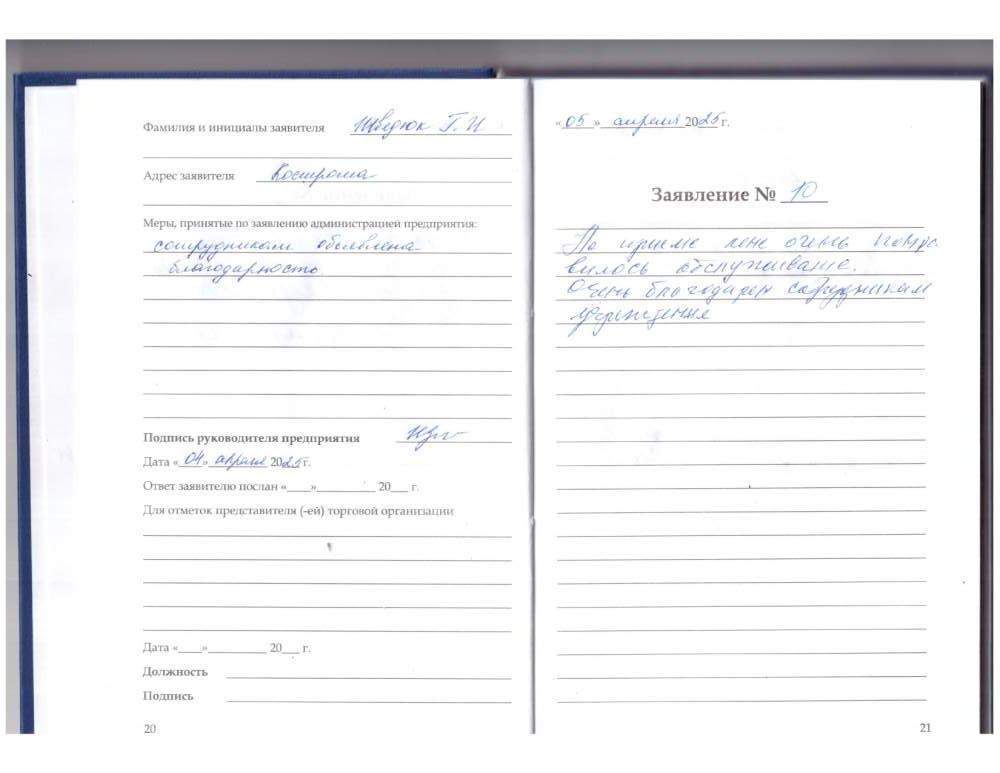 Фамилия и инициалы заявителя Шведюк Г. И
Адрес заявителя Кострома
Меры, принятые по заявлению администрацией предприятия:
сотрудникам объявлена
благодарность
Подпись руководителя предприятия
Дата «04» апреля 2025 г.
Ответ заявителю послан «____»__________ 20___ г.
Для отметок представителя (-ей) торговой организации
Дата «____»__________ 20___ г.
Должность
Подпись
20
«05» апреля 2025 г.
Заявление № 10
На приеме мне очень понра
вилось обслуживание.
Очень благодарен сотрудникам
учреждения
21